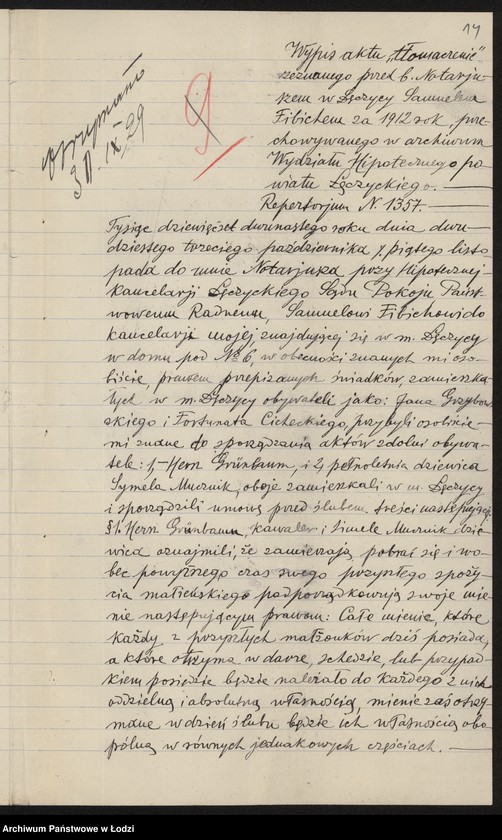 14
Wypis aktu „tłomaczenie”
zeznanego przed b. Notarju-
szem w Łęczycy Samuelem
Fibichem za 1912 rok, prze-
chowywanego w archiwum
Wydziału Hipotecznego po-
wiatu Łęczyckiego.
Repertorjum N. 1357.
otrzymano
30.IX.29
9
Tysiąc dziewięćset dwunastego roku dnia dwu-
dziestego trzeciego października / piątego listo
pada do mnie Notarjusza przy Hipotecznej
kancelarji Łęczyckiego Sądu Pokoju Państ-
wowemu Radnemu, Samuelowi Fibichowi do
kancelarji mojej znajdującej się w m. Łęczycy
w domu pod № 6, w obecności znanych mi oso-
biście, prawem przepisanych świadków, zamieszka-
łych w m. Łęczycy obywateli jako: Jana Grzybow
skiego i Fortunata Cicheckiego, przybyli osobiście
mi znane do sporządzania aktów zdolni obywa-
tele: 1) Hern Grünbaum, i 2) pełnoletnia dziewica
Symela Mucznik, oboje zamieszkali w m. Łęczycy
i sporządzili umowę przed ślubem treści następującej:
§1. Hern Grünbaum, kawaler i Simele Mucznik dzie
wica oznajmili, że zamierzają pobrać się i wo-
bec powyższego czas swego przyszłego spoży-
cia małżeńskiego podporządkowują swoje mie-
nie następującym prawom: Całe mienie, które
każdy z przyszłych małżonków dziś posiada,
a które otrzyma w darze, schedzie, lub przypad-
kiem posiędzie będzie należało do każdego z nich
oddzielną i absolutną własnością, mienie zaś otrzy-
mane w dzień ślubu będzie ich własnością obo
pólną w równych jednakowych częściach.
Archiwum Państwowe w Łodzi